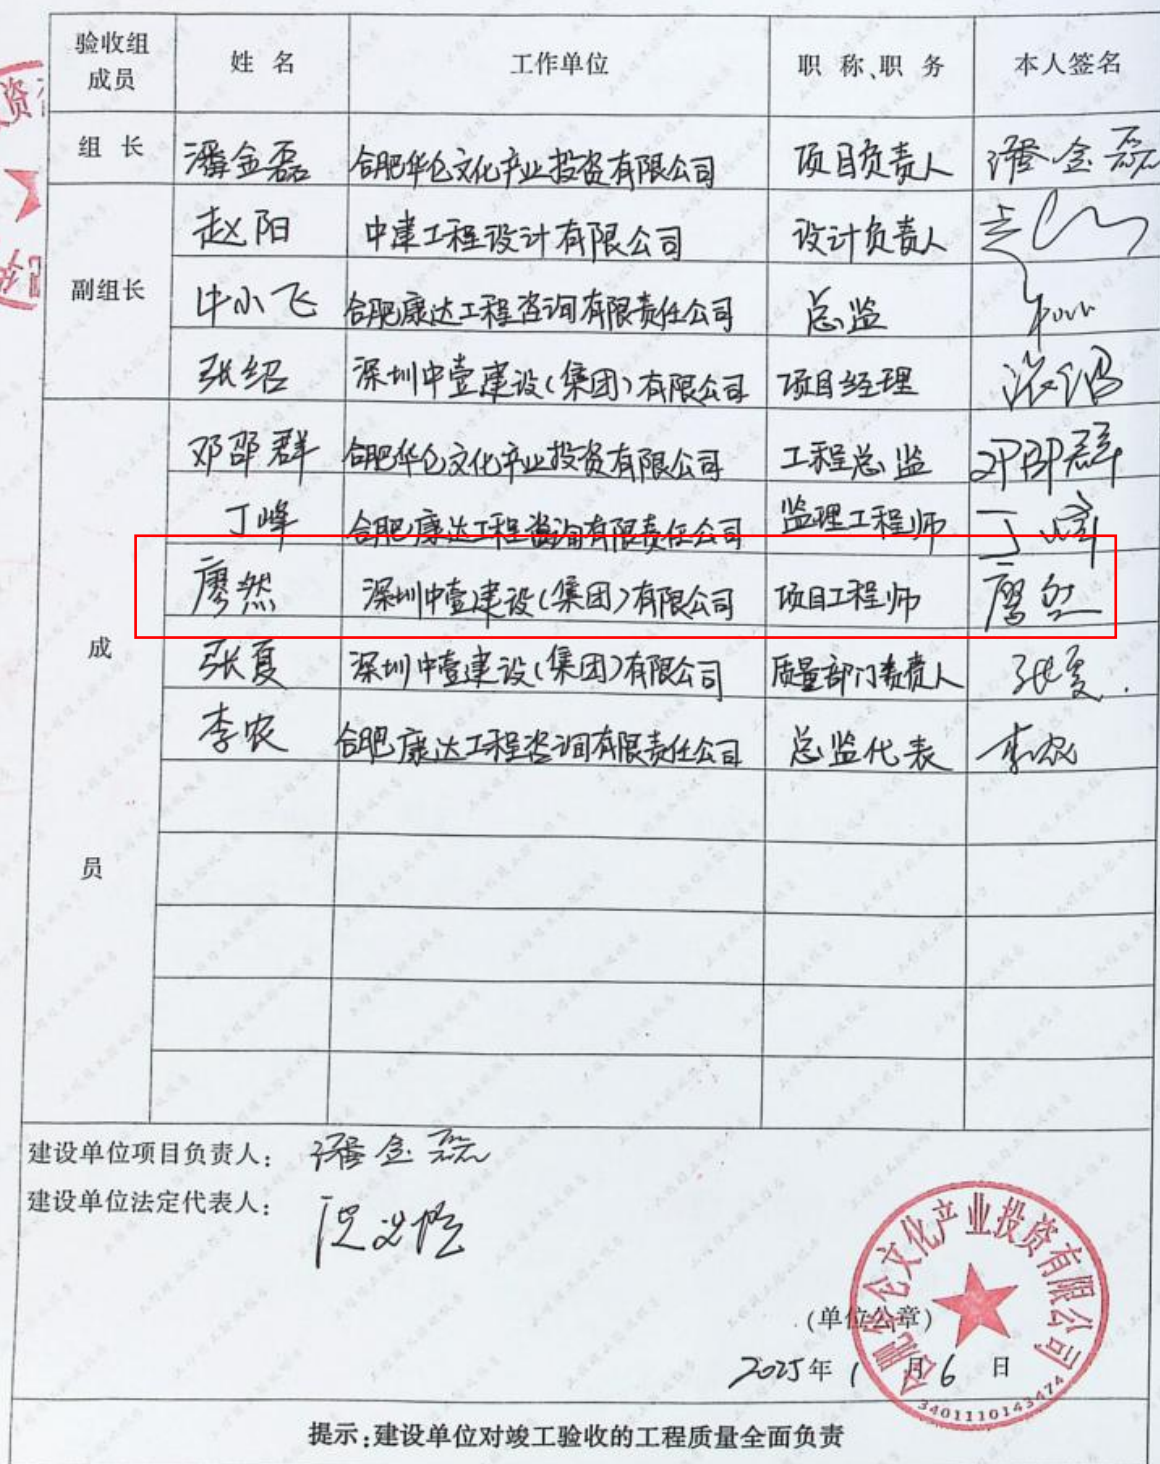 验收组成员 姓名 工作单位 职称、职务 本人签名
组长 潘金磊 合肥华仑文化产业投资有限公司 项目负责人 潘金磊
副组长 赵阳 中津工程设计有限公司 设计负责人
牛小飞 合肥康达工程咨询有限责任公司 总监
张绍 深圳中壹建设(集团)有限公司 项目经理 张绍
成员 邓邵群 合肥华仑文化产业投资有限公司 工程总监 邓邵群
丁峰 合肥康达工程咨询有限责任公司 监理工程师 丁峰
廖然 深圳中壹建设(集团)有限公司 项目工程师 廖然
张夏 深圳中壹建设(集团)有限公司 质量部门责责人 张夏
李农 合肥康达工程咨询有限责任公司 总监代表 李农
建设单位项目负责人: 潘金磊
建设单位法定代表人:
合肥华仑文化产业投资有限公司
(单位公章)
2025年1月6日
3401110143474
提示:建设单位对竣工验收的工程质量全面负责